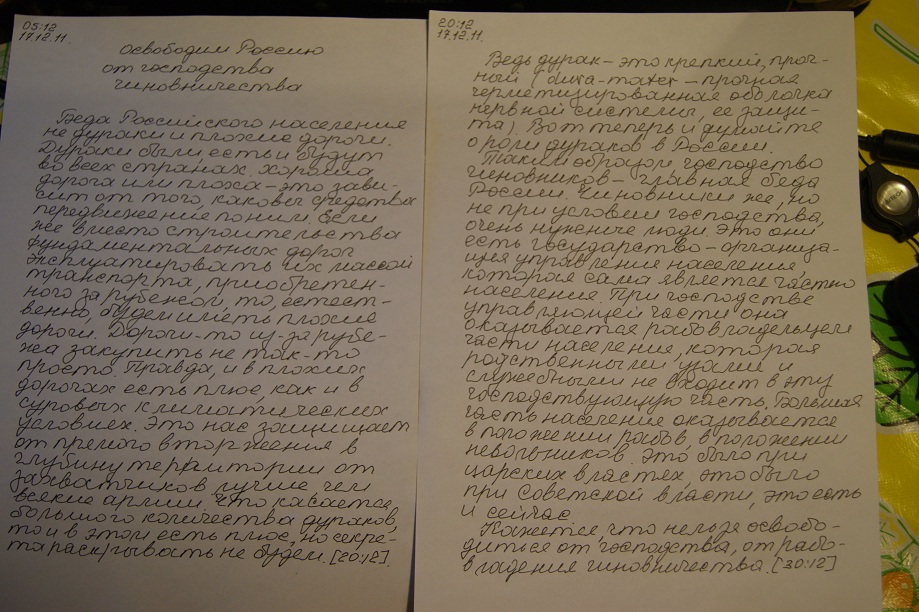 05:12
17.12.11.
Освободим Россию
от господства
чиновничества
Беда Российского населения
не дураки и плохие дороги.
Дураки были, есть и будут
во всех странах. Хороша
дорога или плоха - это зави-
сит от того, каковы средства
передвижения по ним. Если
же вместо строительства
фундаментальных дорог
эксплуатировать их массой
транспорта, приобретен-
ного за рубежом, то, естест-
венно, будем иметь плохие
дороги. Дороги-то из-за рубе-
жа закупить не так-то
просто. Правда, и в плохих
дорогах есть плюс, как и в
суровых климатических
условиях. Это нас защищает
от прямого вторжения в
глубину территории от
захватчиков лучше чем
всякие армии. Что касается
большого количества дураков,
то и в этом есть плюс, но секре-
та раскрывать не будем. [20:12].
20:12
17.12.11.
Ведь дурак - это крепкий, проч-
ный ( - прочная
герметизированная оболочка
нервной системы, ее защи-
та). Вот теперь и думайте
о роли дураков в России.
Таким образом, господство
чиновников - главная беда
России. Чиновники же, но
не при условии господства,
очень нужные люди. Это они
есть государство - организа-
ция управления населения,
которая сама является частью
населения. При господстве
управляющей части она
оказывается рабовладельцем
части населения, которая
родственными узами и
служебными не входит в эту
господствующую часть. Большая
часть населения оказывается
в положении рабов, в положении
невольников. Это было при
царских властях, это было
при Советской власти, это есть
и сейчас.
Кажется, что нельзя освобо-
диться от господства, от рабо-
владения чиновничества. [30:12]